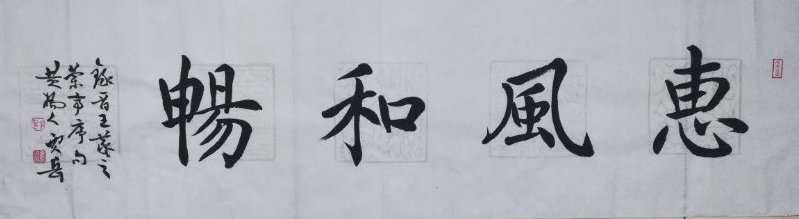 惠風和暢
錄晋王羲之
蘭亭序句